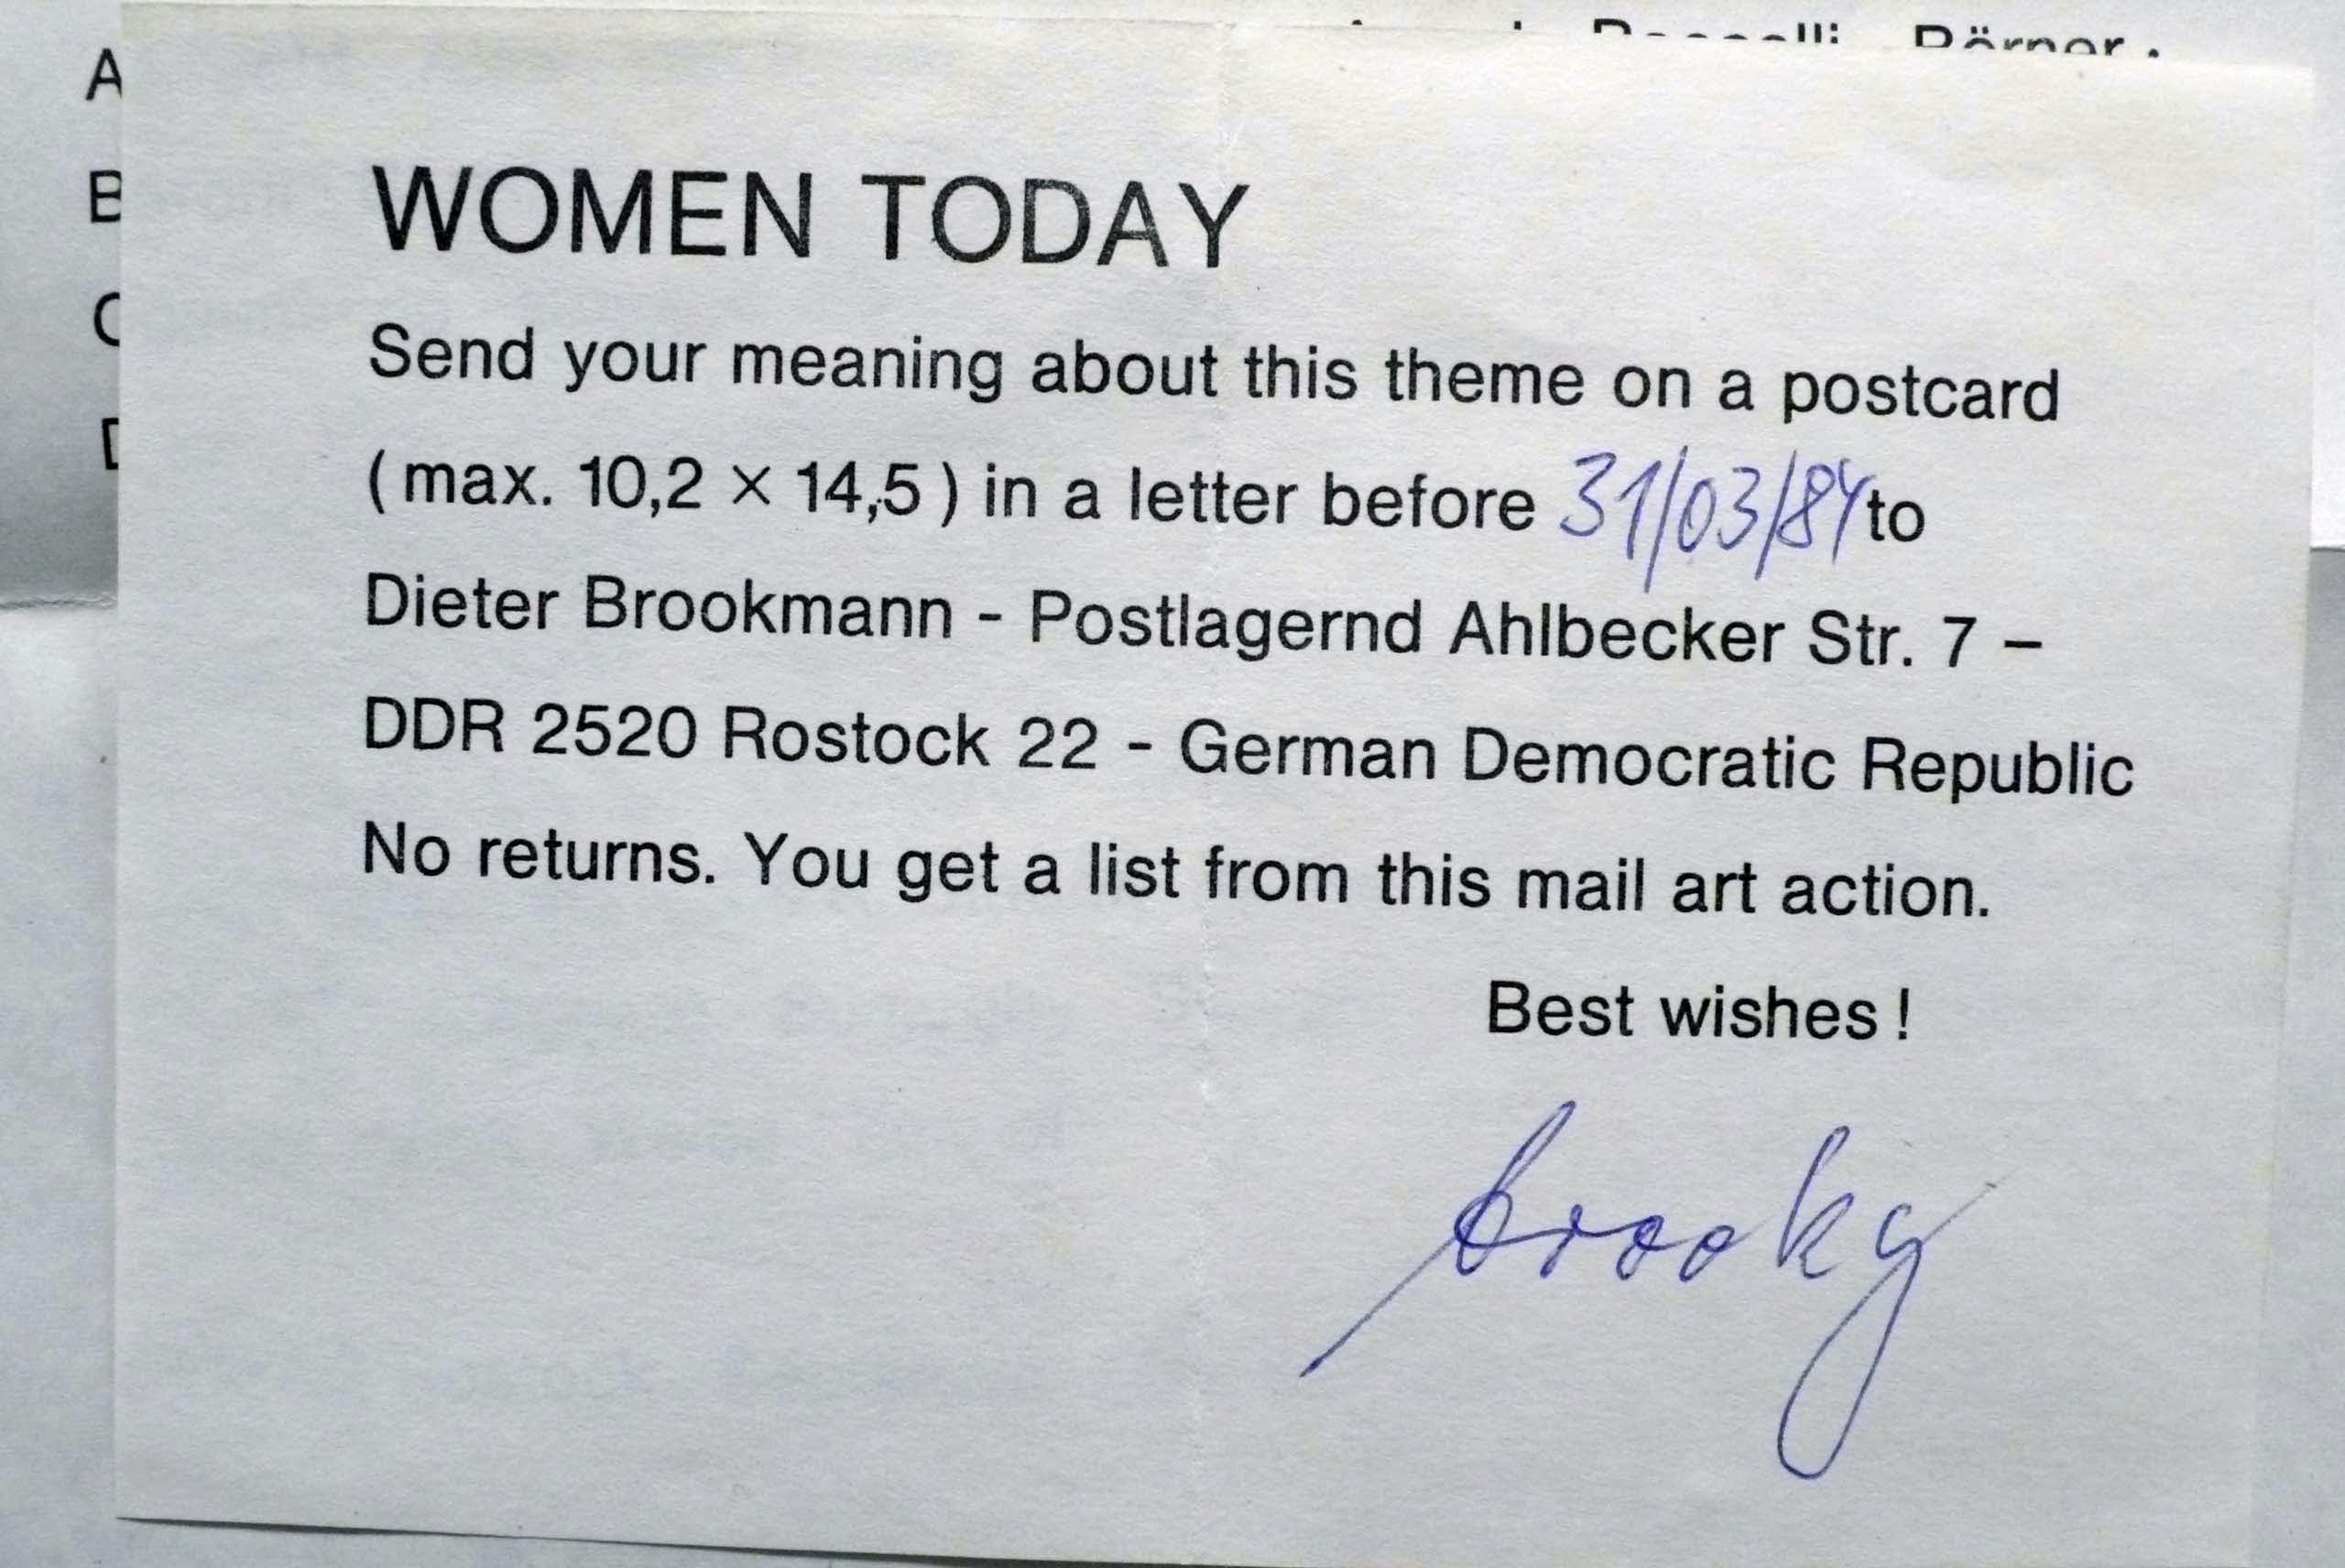 A
B
C
D
WOMEN TODAY
Send your meaning about this theme on a postcard
(max. 10,2 × 14,5) in a letter before 31/03/84 to
Dieter Brookmann - Postlagernd Ahlbecker Str. 7 –
DDR 2520 Rostock 22 - German Democratic Republic
No returns. You get a list from this mail art action.
Best wishes!
brooky